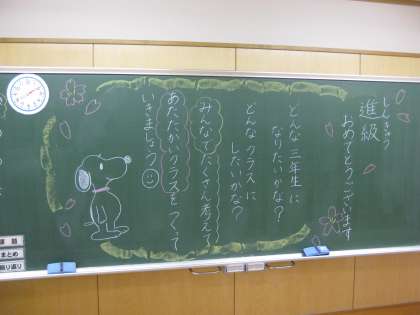 しんきゅう
進級
おめでとうございます
どんな三年生に
なりたいかな？
どんなクラスに
したいかな？
みんなでたくさん考えて
あたたかいクラスをつくって
いきましょう
課題
まとめ
振り返り